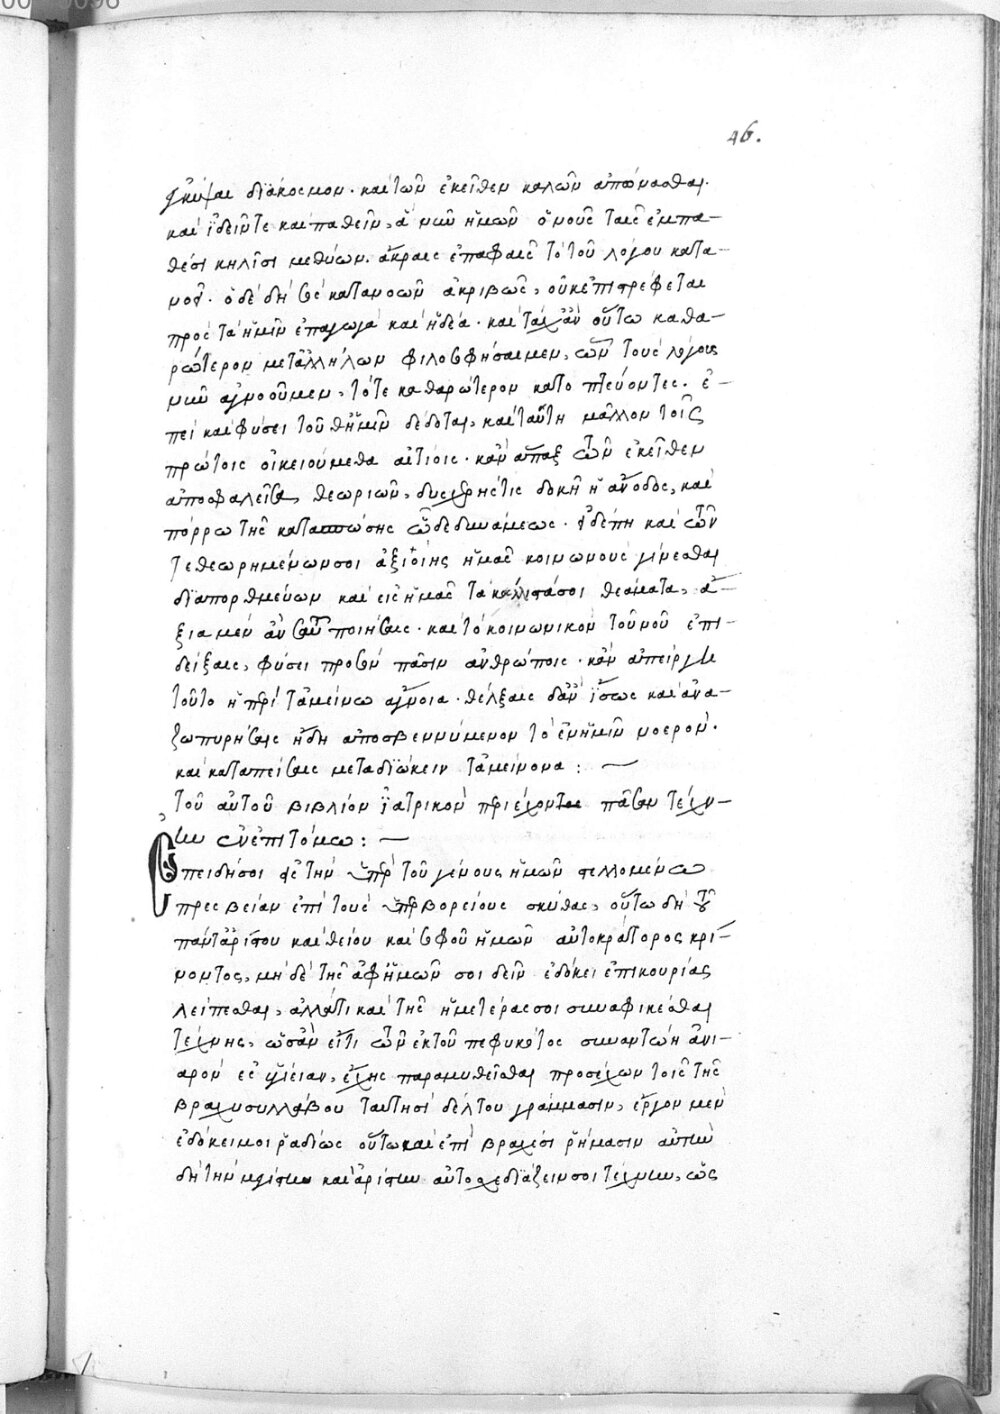 46.
κύψαι διάκοσμον. καὶ τῶν ἐκεῖθεν καλῶν ἀπόνασθαι.
καὶ ἰδεῖν τε καὶ παθεῖν, ἃ νῦν ἡμῶν ὁ νοῦς ταῖς ἐμπα-
θέσι κηλῖσι μεθύων. ἄκραις ἐπαφαῖς τὸ τοῦ λόγου κατα-
νοῶν. ὁ δὲ δὴ κατανοῶν ἀκριβῶς, οὐκ ἐπιστρέφεται
πρὸς τὰ ἡμῖν ἐπαγωγὰ καὶ ἡδέα. καὶ τάχ' ἂν οὕτω καθα-
ρώτερον μετ' ἀλλήλων φιλοσοφήσαιμεν, ὧν τοὺς λόγους
νῦν ἀγνοοῦμεν, τότε καθαρώτερον κατοπτεύοντες. ἐ-
πεὶ καὶ φύσει τοῦθ' ἡμῖν δέδοται, καὶ ταύτῃ μᾶλλον τοῖς
πρώτοις οἰκειούμεθα αἰτίοις. κἂν ἅπαξ τῶν ἐκεῖθεν
ἀποσφαλεῖσα θεωριῶν, δυσχερής τις δοκῇ ἡ ἄνοδος, καὶ
πόρρω τῆς καταπτώσης ὧδε δυνάμεως. εἰ δέ πη καὶ τῶν
τεθεωρημένων σοι ἀξιοίης ἡμᾶς κοινωνοὺς γίνεσθαι
διαπορθμεύων καὶ εἰς ἡμᾶς τὰ κάλλιστά σοι θεάματα, ἄ-
ξια μὲν ἂν σαυτοῦ ποιήσαις. καὶ τὸ κοινωνικὸν τοῦ νοῦ ἐπι-
δείξαις, φύσει προσὸν πᾶσιν ἀνθρώποις. κἂν ἀπείργῃ
τοῦτο ἡ περὶ τἀμείνω ἄγνοια. θέλξαις δ' ἂν ἴσως καὶ ἀνα-
ζωπυρήσαις ἤδη ἀποσβεννύμενον τὸ ἐν ἡμῖν νοερόν.
καὶ καταπείσαις μεταδιώκειν τἀμείνονα: —
τοῦ αὐτοῦ βιβλίον ἰατρικὸν περιέχον πᾶσαν τέχν-
ην ἐν ἐπιτόμῳ: —
Ἐπειδή σοι ἐς τὴν ὑπὲρ τοῦ γένους ἡμῶν στελλομένῳ
πρεσβείαν ἐπὶ τοὺς ὑπερβορείους σκύθας, οὕτω δὴ τοῦ
πάντ' ἀρίστου καὶ θείου καὶ σοφοῦ ἡμῶν αὐτοκράτορος κρί-
νοντος, μηδὲ τῆς ἀφ' ἡμῶν σοι δεῖν ἐδόκει ἐπικουρίας
λείπεσθαι, ἀλλά τι καὶ τῆς ἡμετέρας σοι συναφικέσθαι
τέχνης, ὡς ἂν εἴ τι τῶν ἐκ τοῦ πεφυκότος συναντώη ἀνι-
αρὸν ἐς ὑγίειαν, ἔχῃς παραμυθεῖσθαι προσέχων τοῖς τῆς
βραχυσυλλάβου ταυτησὶ δέλτου γράμμασιν, ἔργον μὲν
ἐδόκει μοι ῥᾳδίως οὕτω καὶ ἐπὶ βραχέσι ῥήμασιν αὐτὴν
δὴ τὴν μεγίστην καὶ ἀρίστην αὐτοσχεδιάζειν σοι τέχνην, ὡς